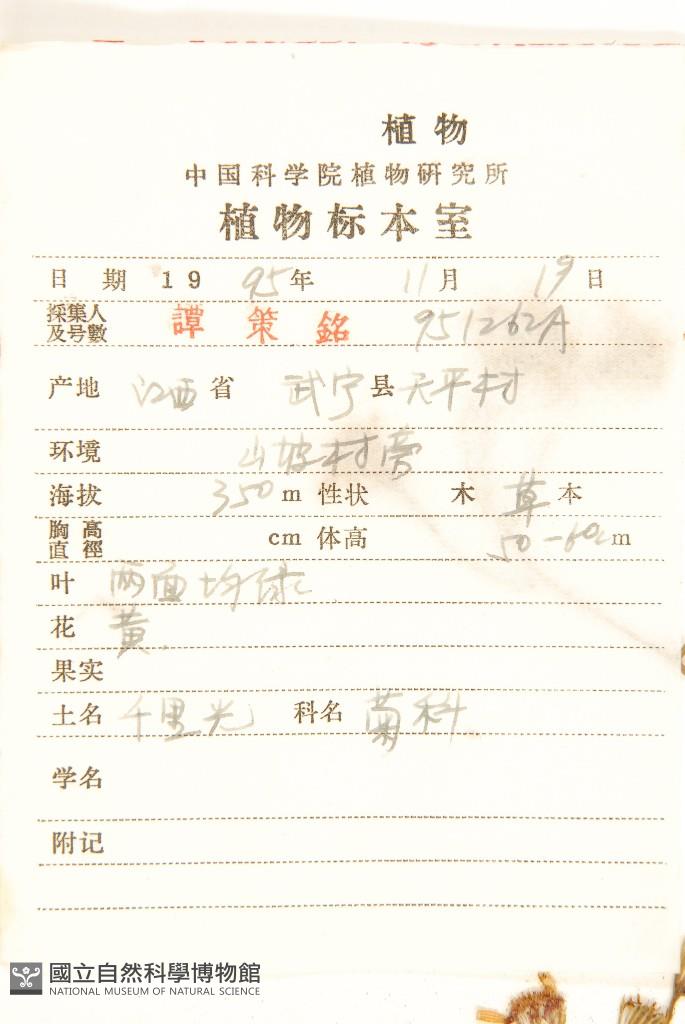 植物
中国科学院植物研究所
植物标本室
日期 1995年 11月 19日
採集人及号數 譚策銘 951262A
产地 江西省 武宁县天平村
环境 山坡村旁
海拔 350 m 性状 木 草 本
胸高直徑 cm 体高 50-60cm
叶 两面均绿
花 黄.
果实
土名 千里光 科名 菊科.
学名
附记
國立自然科學博物館
NATIONAL MUSEUM OF NATURAL SCIENCE